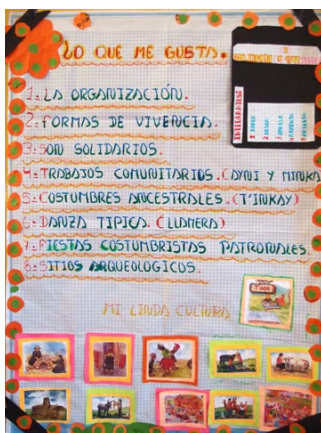 LO QUE ME GUSTA.
1: LA ORGANIZACIÓN.
2: FORMAS DE VIVENCIA.
3: SON SOLIDARIOS.
4: TRABAJOS COMUNITARIOS. (AYNI Y MINKA)
5: COSTUMBRES ANCESTRALES. (T'INKAY)
6: DANZA TIPICA. (LLAMERA)
7: FIESTAS COSTUMBRISTAS PATRONALES.
8: SITIOS ARQUEOLOGICOS.
MI LINDA CULTURA